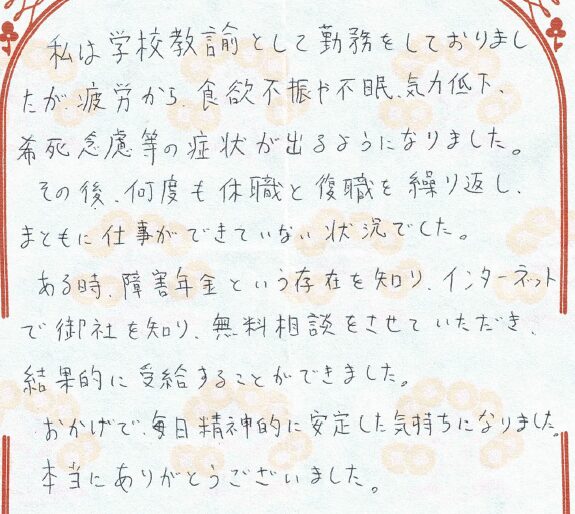 私は学校教諭として勤務をしておりまし
たが、疲労から、食欲不振や不眠、気力低下、
希死念慮等の症状が出るようになりました。
その後、何度も休職と復職を繰り返し、
まともに仕事ができていない状況でした。
ある時、障害年金という存在を知り、インターネット
で御社を知り、無料相談をさせていただき、
結果的に受給することができました。
おかげで、毎日精神的に安定した気持ちになりました。
本当にありがとうございました。